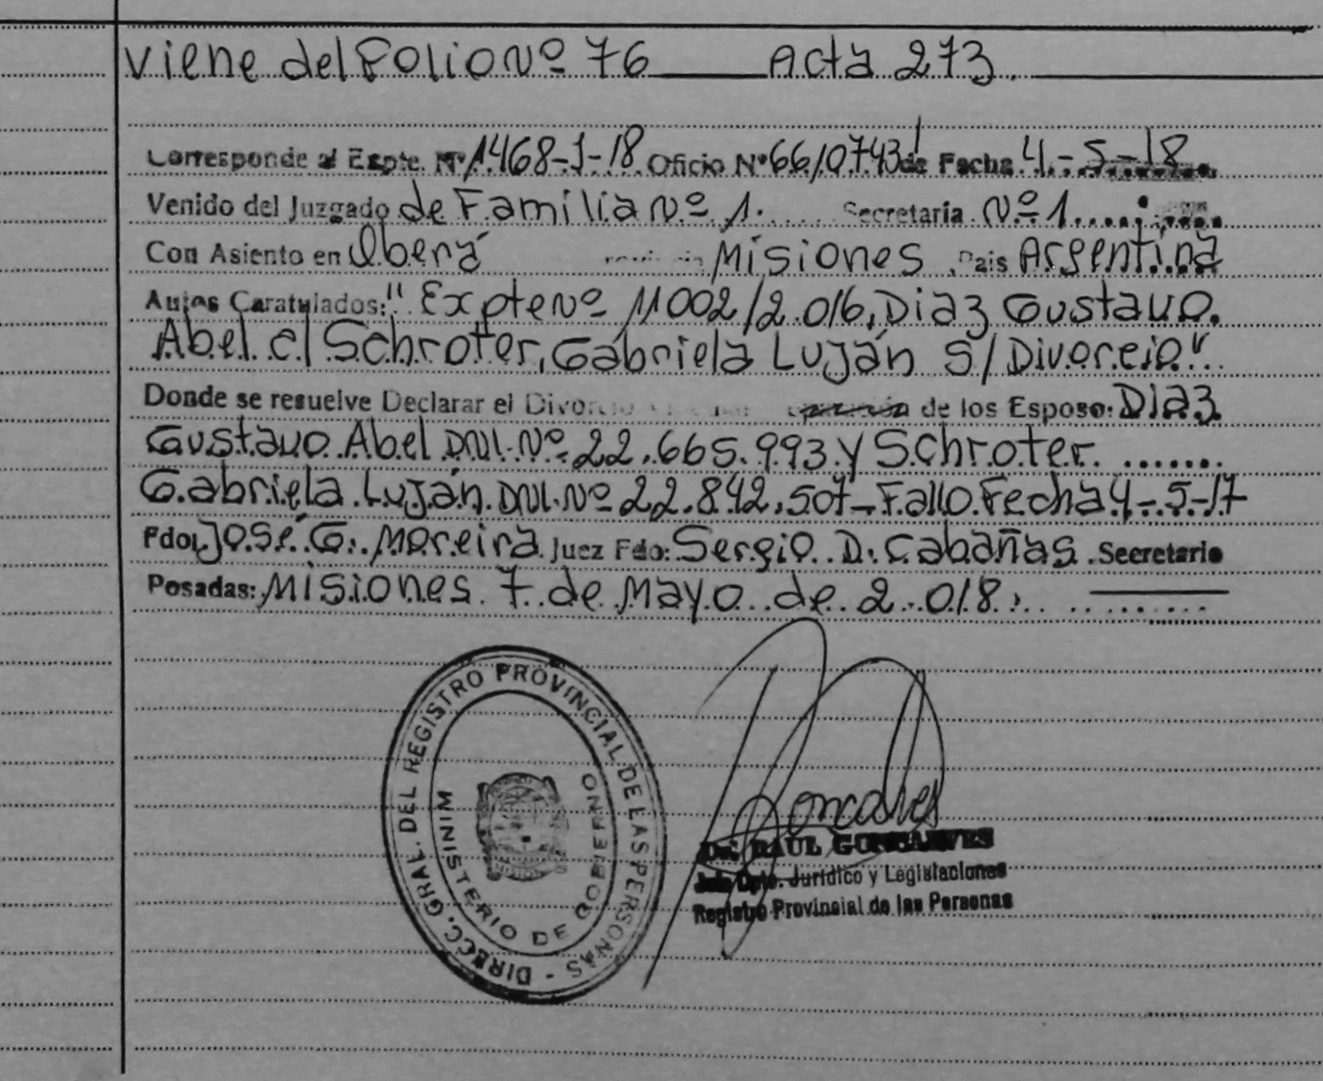 Viene del Folio Nº 76 Acta 273.
Corresponde al Expte. Nº 1468-J-18 Oficio Nº 66/0743 de Fecha 4-5-18
Venido del Juzgado de Familia Nº 1. Secretaria Nº 1
Con Asiento en Oberá Misiones Pais Argentina
Autos Caratulados: "Expte Nº 11002/2.016, Diaz Gustavo
Abel c/ Schroter, Gabriela Luján S/Divorcio"
Donde se resuelve Declarar el Divorcio de los Esposo: Diaz
Gustavo Abel DNI. Nº 22.665.993 y Schroter
Gabriela Luján DNI. Nº 22.842.507 - Fallo Fecha 4-5-17
Fdo, José G. Moreira Juez Fdo: Sergio D. Cabañas Secretario
Posadas: Misiones 7 de Mayo de 2.018.
DIRECC. GRAL. DEL REGISTRO PROVINCIAL DE LAS PERSONAS -
MINISTERIO DE GOBIERNO
Goncalves
Dr. RAUL GONCALVES
Jefe Dpto. Jurídico y Legislaciones
Registro Provincial de las Personas